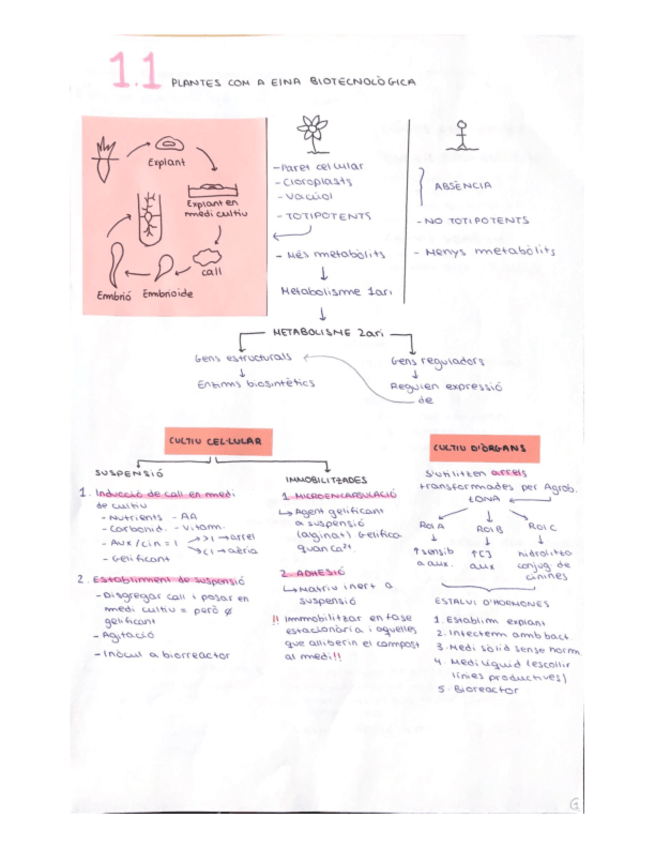 1.1 PLANTES COM A EINA BIOTECNOLÒGICA
Explant
Explant en
medi cultiu
call
Embrioide
Embrió
- Paret cel·lular
- Cloroplasts
- Vacúol
- TOTIPOTENTS
- Més metabòlits
Metabolisme 1ari
ABSÈNCIA
- NO TOTIPOTENTS
- Menys metabòlits
METABOLISME 2ari
Gens estructurals
Enzims biosintètics
Gens reguladors
Regulen expressió
de
CULTIU CEL·LULAR
SUSPENSIÓ
1. Inducció de call en medi
de cultiu
- Nutrients - AA
- Carbohid. - Vitam.
- Aux/cin = 1 >1 → arrel
<1 → aèria
- Gelificant
2. Establiment de suspensió
- Disgregar call i posar en
medi cultiu = però ø
gelificant
- Agitació
- Inòcul a bioreactor
IMMOBILITZADES
1. MICROENCAPSULACIÓ
↳ Agent gelificant
a suspensió
(alginat) Gelifica
quan Ca2+.
2. ADHESIÓ
↳ Matriu inert a
suspensió
!! Immobilitzar en fase
estacionària i aquelles
que alliberin el compost
al medi!!
CULTIU D'ÒRGANS
S'utilitzen arrels
transformades per Agrob.
tDNA
Rol A
Rol B
Rol C
↑ sensib
a aux.
↑[]
aux
hidrolitza
conjug de
cinines
ESTALVI D'HORMONES
1. Establim explant
2. Infectem amb bact
3. Medi sòlid sense horm.
4. Medi líquid (escollir
línies productives)
5. Bioreactor